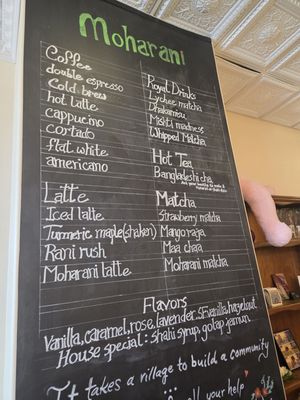 Moharani
Coffee
double espresso
Cold brew
hot latte
cappucino
cortado
flat white
americano
Latte
Iced latte
Turmeric maple(shaken)
Rani rush
Moharani latte
Royal Drinks
Lychee matcha
Mishti madness
Whipped Matcha
Hot Tea
Bangladeshi cha
Matcha
Strawberry matcha
Mangoraja
Maa chaa
Moharani matcha
Flavors
Vanilla, caramel, rose, lavender, SFvanilla, hazelnut
House special: shahi syrup, golap jamun
It takes a village to build a community
all your help